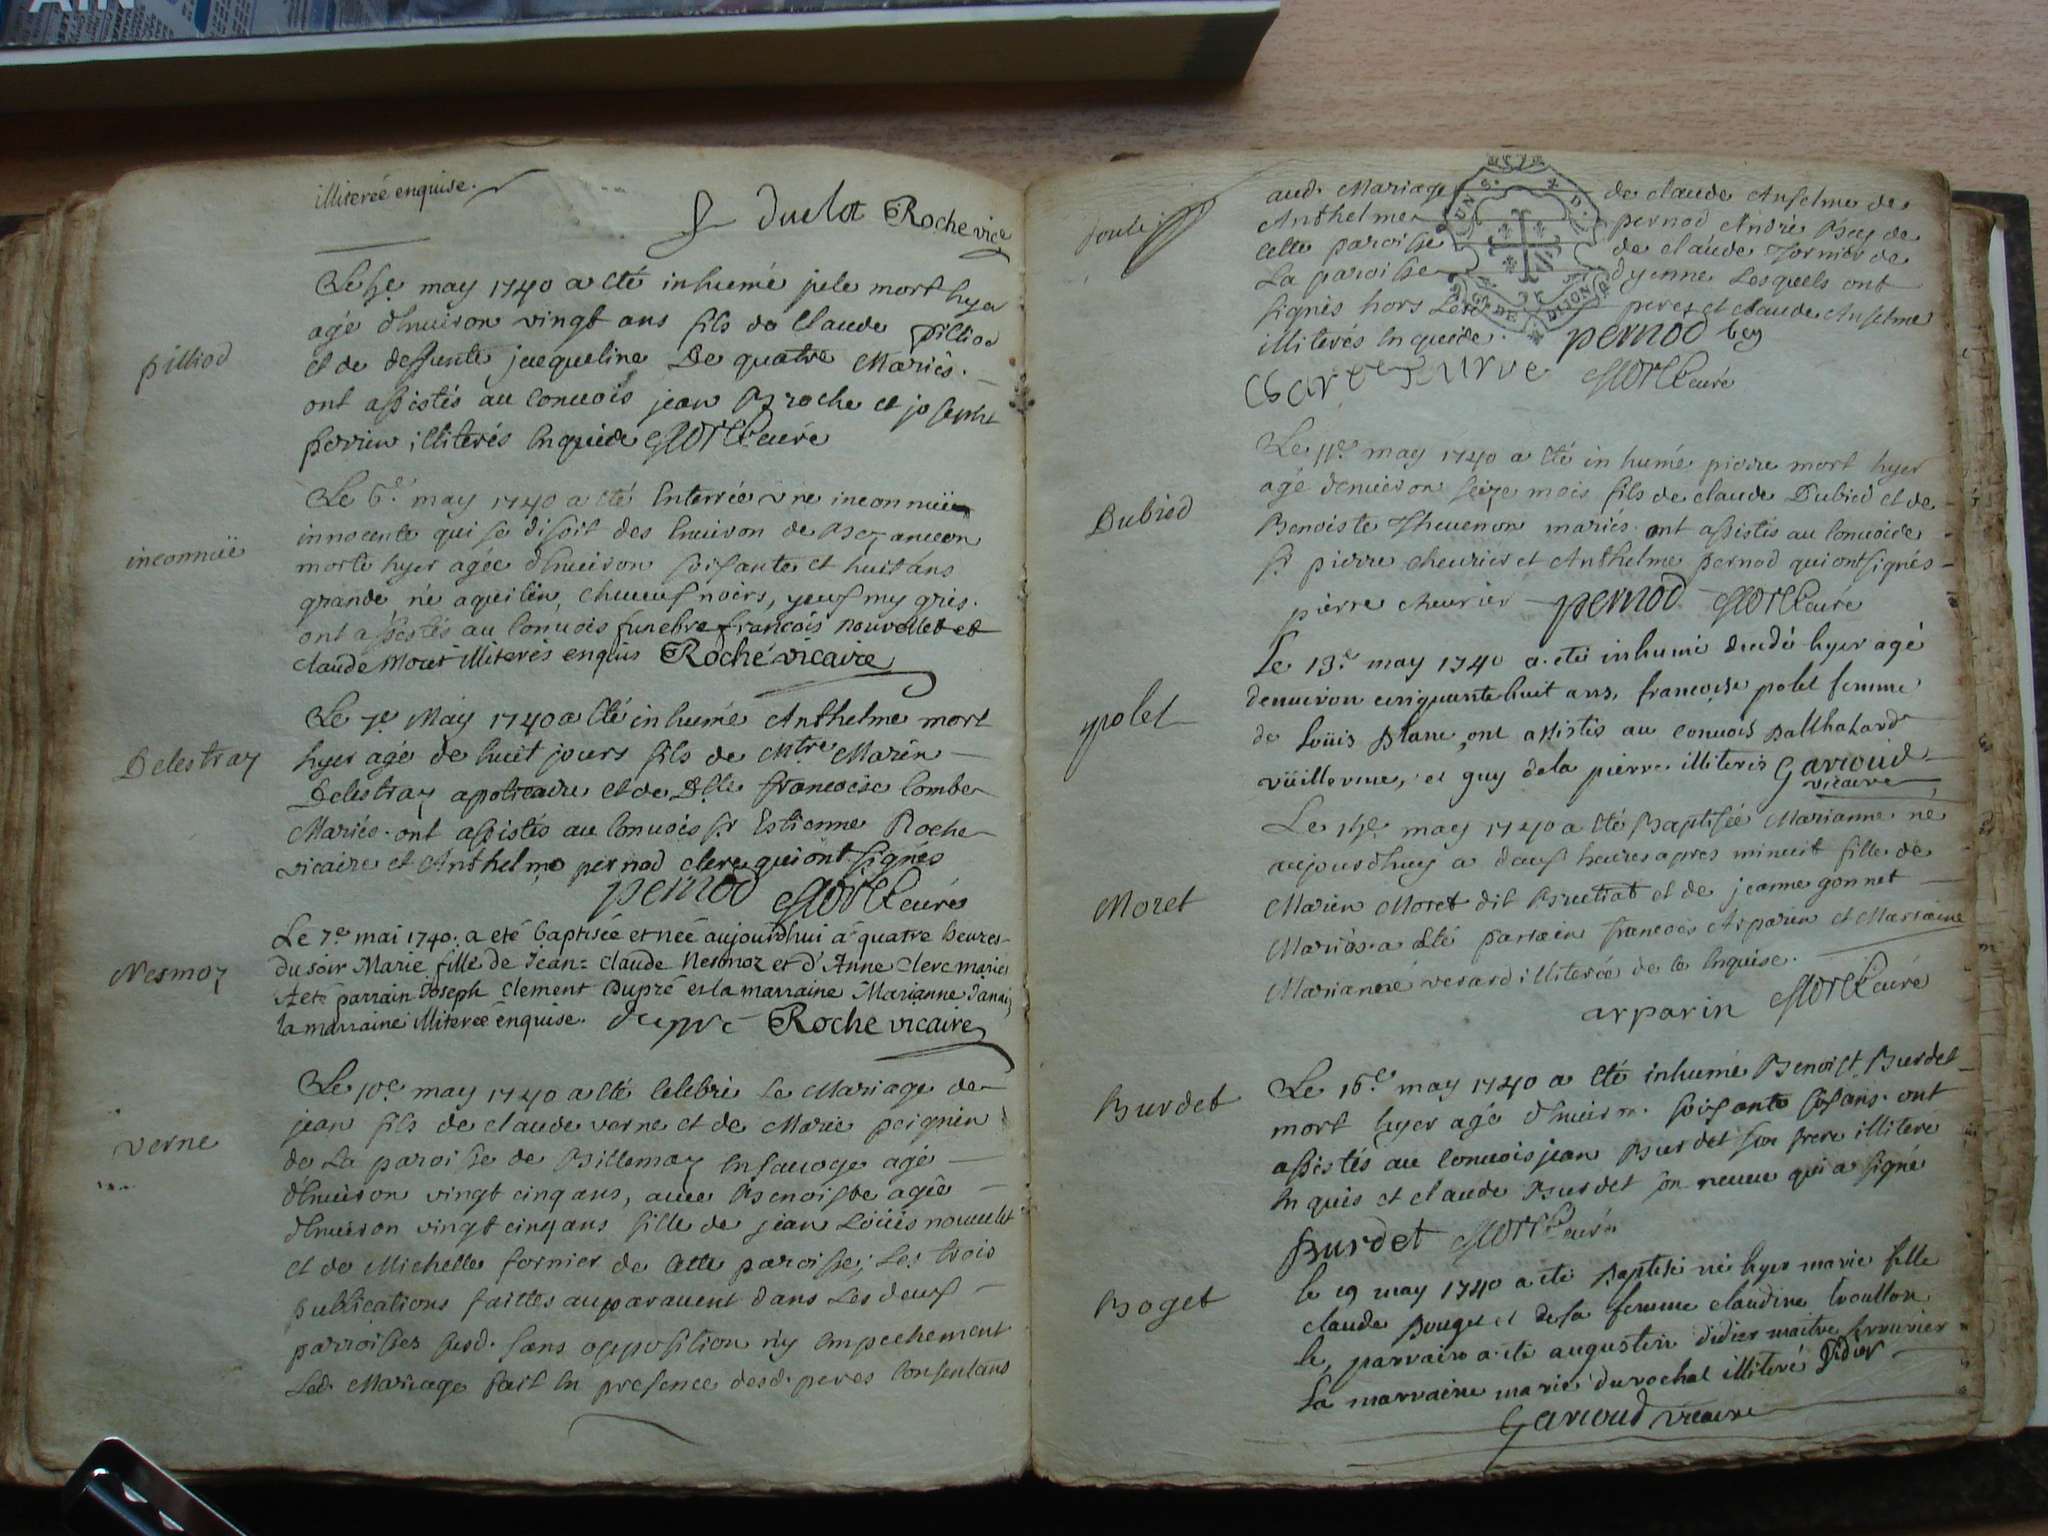 AIN
illiterée enquise.
Duclot Roche vice
Le 5e may 1740 a eté inhumé mort hyer
agé d'enuiron vingt ans fils de Claude pilliod
pilliod
et de deffunte jacqueline De quatre Mariés.
ont assistés au conuois jean Broche et joseph
perrien illiterés enquide curé
Le 6e may 1740 a eté Enterrée vne inconnüe
inconnüe
innocente qui se disoit des Enuiron de Bezancon
morte hyer agée d'Enuiron soisante et huit ans
grande, né aquilin, cheueuf noirs, yeuf my gris.
ont assistés au Conuois funebre francois nouvellet et
claude Moret illiterés enquis Roche vicaire
Le 7e May 1740 a eté inhumé Anthelme mort
Delestraz
hyer agé de huit jours fils de Mtre Marin
Delestraz apoticaire et de Dlle francoise Combe
Mariés. ont assistés au Conuois sr Estienne Roche
vicaire et Anthelme pernod clerc qui ont signés
pernod curé
Le 7e mai 1740. a eté baptisée et née aujourdhui à quatre heures
Nesmoz
du soir Marie fille de Jean-claude Nesmoz et d'Anne Clerc mariés
A eté parrain Joseph Clement Dupré et la marraine Marianne
la marraine illiterée enquise. dupré Roche vicaire
Le 10e may 1740 a eté Celebré Le Mariage de
jean fils de claude verne et de Marie peignin
verne
de La paroisse de Billemaz En sauoye agé
d'Enuiron vingt cinq ans, auec Benoiste agée
d'Enuiron vingt cinq ans fille de jean Loüis nouuelet
et de Michelle fornier de Cette paroisse; Les trois
publications faittes auparauent dans Les deuf
parroisses susd. sans opposition n'y Empechement
Led. Mariage fait En presence desd. peres Consentans
aud. Mariage de claude Anselme de
Anthelme pernod André Bey de
Cette paroisse de claude fornier de
La paroisse dyenne Lesquels ont
signés hors Les peres et claude Anselme
illiterés Enquide. pernod bey
curé
Le 11e may 1740 a eté inhumé pierre mort hyer
agé denuiron seize mois fils de claude Dubiod et de
Dubiod
Benoiste Theuenon mariés. ont assistés au Conuoide
sr pierre cheurier et Anthelme pernod qui ont signés
pierre cheurier pernod curé
Le 13e may 1740 a eté inhumé decedé hyer agé
denuiron cinquante huit ans, francoise polet femme
polet
de Loüis Blanc, ont assistés au conuois Balthazard
vüillerme, et guy dela pierre illiterés Garioud
vicaire
Le 15e may 1740 a eté Baptisée Marianne né
aujourdhuy a deuf heures apres minuit fille de
Moret
Marien Moret dit Bruttat et de jeanne gonnet
Mariés. a eté parrain francois Arparin et Marraine
Marianne verard illiterée de ce Enquise.
arparin curé
Le 16e may 1740 a eté inhumé Benoist Burdet
Burdet
mort hyer agé d'Enuiron soisante ans. ont
assistés au Conuois jean Burdet son frere illiteré
Enquis et claude Burdet son neueu qui a signé
Burdet curé
le 19 may 1740 a eté Baptisé né hyer marie fille
Boget
claude Bouget et de sa femme claudine troullon
le, parrain a eté augustin didier maitre serrurier
La marraine marie durochat illiteré Didier
Garioud vicaire